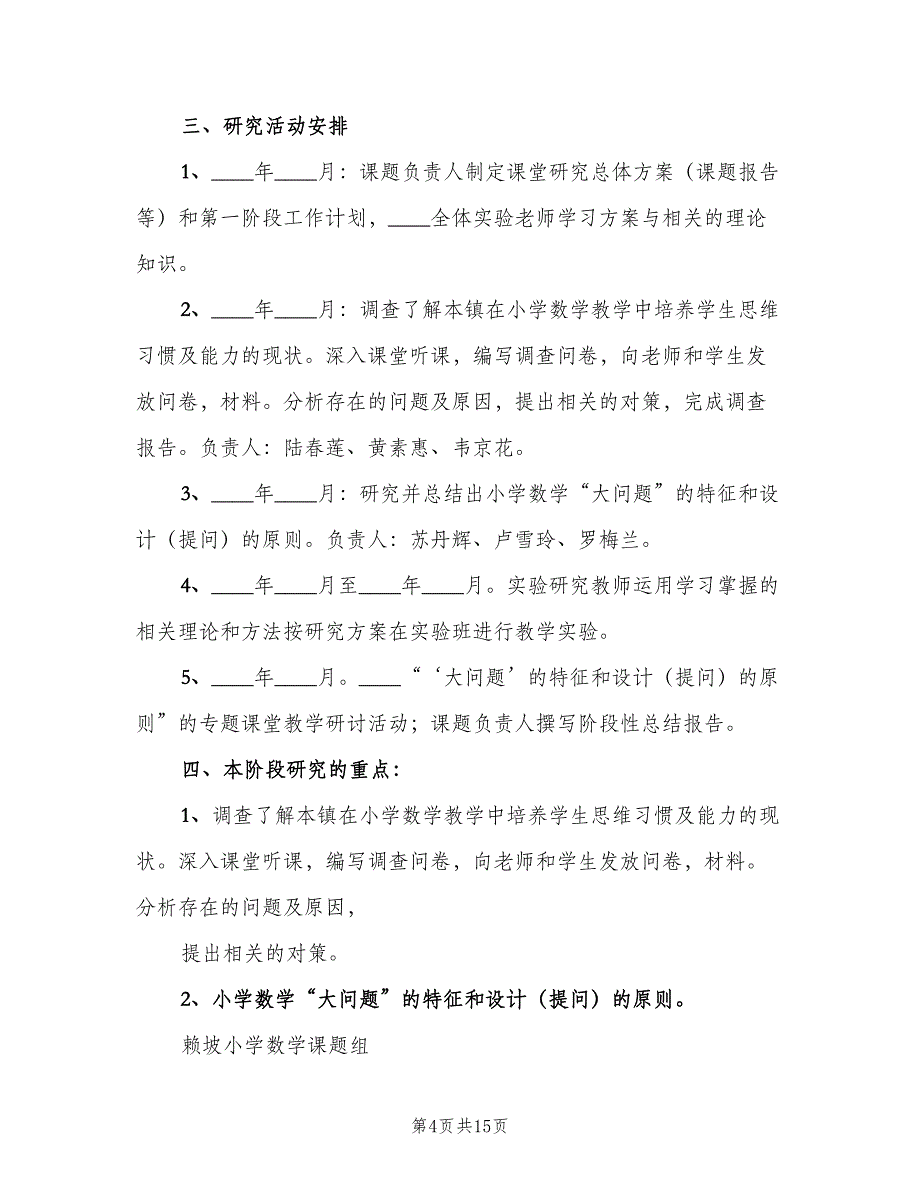 三、研究活动安排
1、____年____月：课题负责人制定课堂研究总体方案（课题报告
等）和第一阶段工作计划，____全体实验老师学习方案与相关的理论
知识。
2、____年____月：调查了解本镇在小学数学教学中培养学生思维
习惯及能力的现状。深入课堂听课，编写调查问卷，向老师和学生发
放问卷，材料。分析存在的问题及原因，提出相关的对策，完成调查
报告。负责人：陆春莲、黄素惠、韦京花。
3、____年____月：研究并总结出小学数学“大问题”的特征和设
计（提问）的原则。负责人：苏丹辉、卢雪玲、罗梅兰。
4、____年____月至____年____月。实验研究教师运用学习掌握的
相关理论和方法按研究方案在实验班进行教学实验。
5、____年____月。____“‘大问题’的特征和设计（提问）的原
则”的专题课堂教学研讨活动；课题负责人撰写阶段性总结报告。
四、本阶段研究的重点：
1、调查了解本镇在小学数学教学中培养学生思维习惯及能力的现
状。深入课堂听课，编写调查问卷，向老师和学生发放问卷，材料。
分析存在的问题及原因，
提出相关的对策。
2、小学数学“大问题”的特征和设计（提问）的原则。
赖坡小学数学课题组
第4页共15页